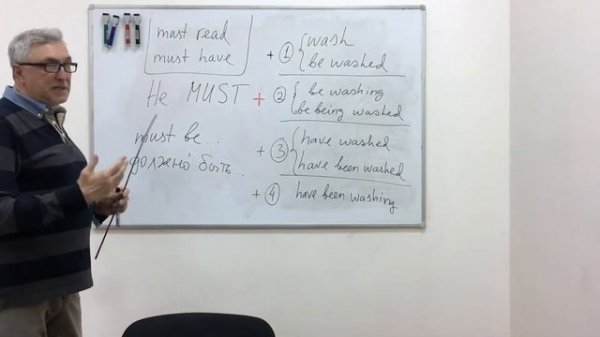 must read
must have
He MUST +
must be...
должно́ быть...
+ ① wash
be washed
② be washing
be being washed
+ ③ have washed
have been washed
+ ④ have been washing